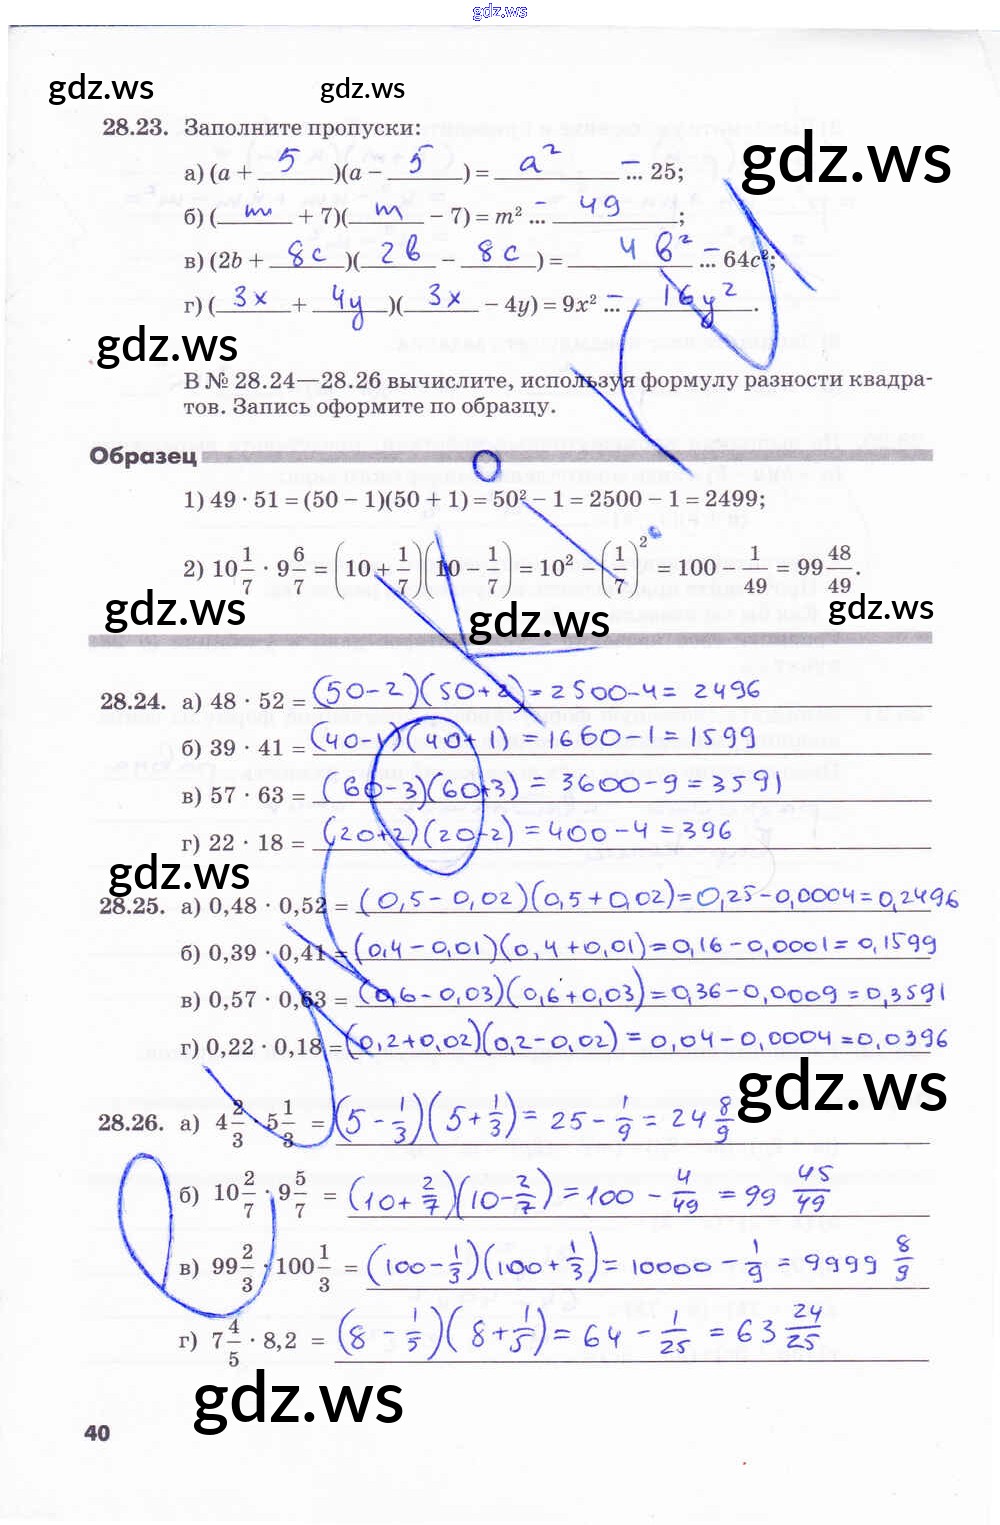 gdz.ws
gdz.ws gdz.ws
28.23. Заполните пропуски:
gdz.ws
а) (a + 5)(a − 5) = a² − ... 25;
б) (m + 7)(m − 7) = m² ... − 49;
в) (2b + 8c)(2b − 8c) = 4b² − ... 64c²;
г) (3x + 4y)(3x − 4y) = 9x² ... − 16y².
gdz.ws
В № 28.24—28.26 вычислите, используя формулу разности квадра-
тов. Запись оформите по образцу.
Образец
1) 49 · 51 = (50 − 1)(50 + 1) = 50² − 1 = 2500 − 1 = 2499;
2) 10 1/7 · 9 6/7 = (10 + 1/7)(10 − 1/7) = 10² − (1/7)² = 100 − 1/49 = 99 48/49.
gdz.ws gdz.ws gdz.ws
28.24. а) 48 · 52 = (50−2)(50+2) = 2500−4 = 2496
б) 39 · 41 = (40−1)(40+1) = 1600−1 = 1599
в) 57 · 63 = (60−3)(60+3) = 3600−9 = 3591
г) 22 · 18 = (20+2)(20−2) = 400−4 = 396
gdz.ws
28.25. а) 0,48 · 0,52 = (0,5−0,02)(0,5+0,02) = 0,25−0,0004 = 0,2496
б) 0,39 · 0,41 = (0,4−0,01)(0,4+0,01) = 0,16−0,0001 = 0,1599
в) 0,57 · 0,63 = (0,6−0,03)(0,6+0,03) = 0,36−0,0009 = 0,3591
г) 0,22 · 0,18 = (0,2+0,02)(0,2−0,02) = 0,04−0,0004 = 0,0396
gdz.ws
28.26. а) 4 2/3 · 5 1/3 = (5 − 1/3)(5 + 1/3) = 25 − 1/9 = 24 8/9
б) 10 2/7 · 9 5/7 = (10 + 2/7)(10 − 2/7) = 100 − 4/49 = 99 45/49
в) 99 2/3 · 100 1/3 = (100 − 1/3)(100 + 1/3) = 10000 − 1/9 = 9999 8/9
г) 7 4/5 · 8,2 = (8 − 1/5)(8 + 1/5) = 64 − 1/25 = 63 24/25
gdz.ws
40